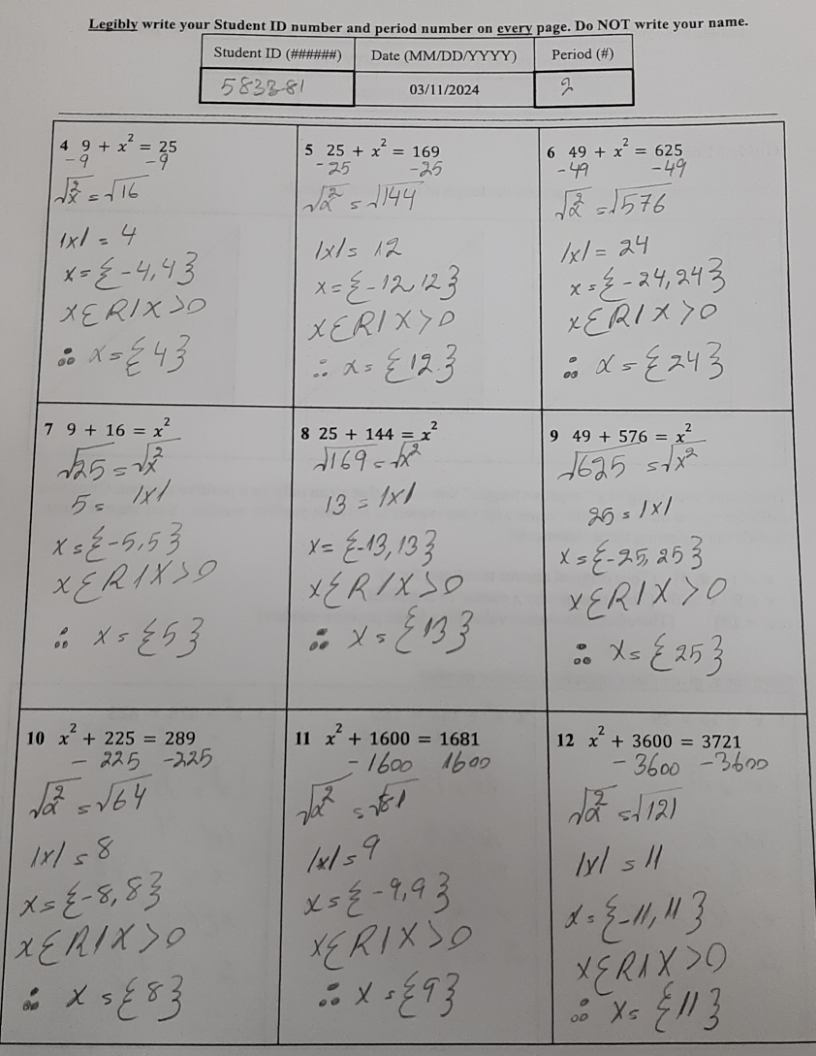 Legibly write your Student ID number and period number on every page. Do NOT write your name.
Student ID (######) Date (MM/DD/YYYY) Period (#)
583381 03/11/2024 2
4 9 + x² = 25
-9 -9
√x² = √16
|x| = 4
x = {-4, 4}
x ∈ R | x > 0
∴ x = {4}
5 25 + x² = 169
-25 -25
√x² = √144
|x| = 12
x = {-12, 12}
x ∈ R | x > 0
∴ x = {12}
6 49 + x² = 625
-49 -49
√x² = √576
|x| = 24
x = {-24, 24}
x ∈ R | x > 0
∴ x = {24}
7 9 + 16 = x²
√25 = √x²
5 = |x|
x = {-5, 5}
x ∈ R | x > 0
∴ x = {5}
8 25 + 144 = x²
√169 = √x²
13 = |x|
x = {-13, 13}
x ∈ R | x > 0
∴ x = {13}
9 49 + 576 = x²
√625 = √x²
25 = |x|
x = {-25, 25}
x ∈ R | x > 0
∴ x = {25}
10 x² + 225 = 289
- 225 -225
√x² = √64
|x| = 8
x = {-8, 8}
x ∈ R | x > 0
∴ x = {8}
11 x² + 1600 = 1681
- 1600 1600
√x² = √81
|x| = 9
x = {-9, 9}
x ∈ R | x > 0
∴ x = {9}
12 x² + 3600 = 3721
- 3600 -3600
√x² = √121
|x| = 11
x = {-11, 11}
x ∈ R | x > 0
∴ x = {11}